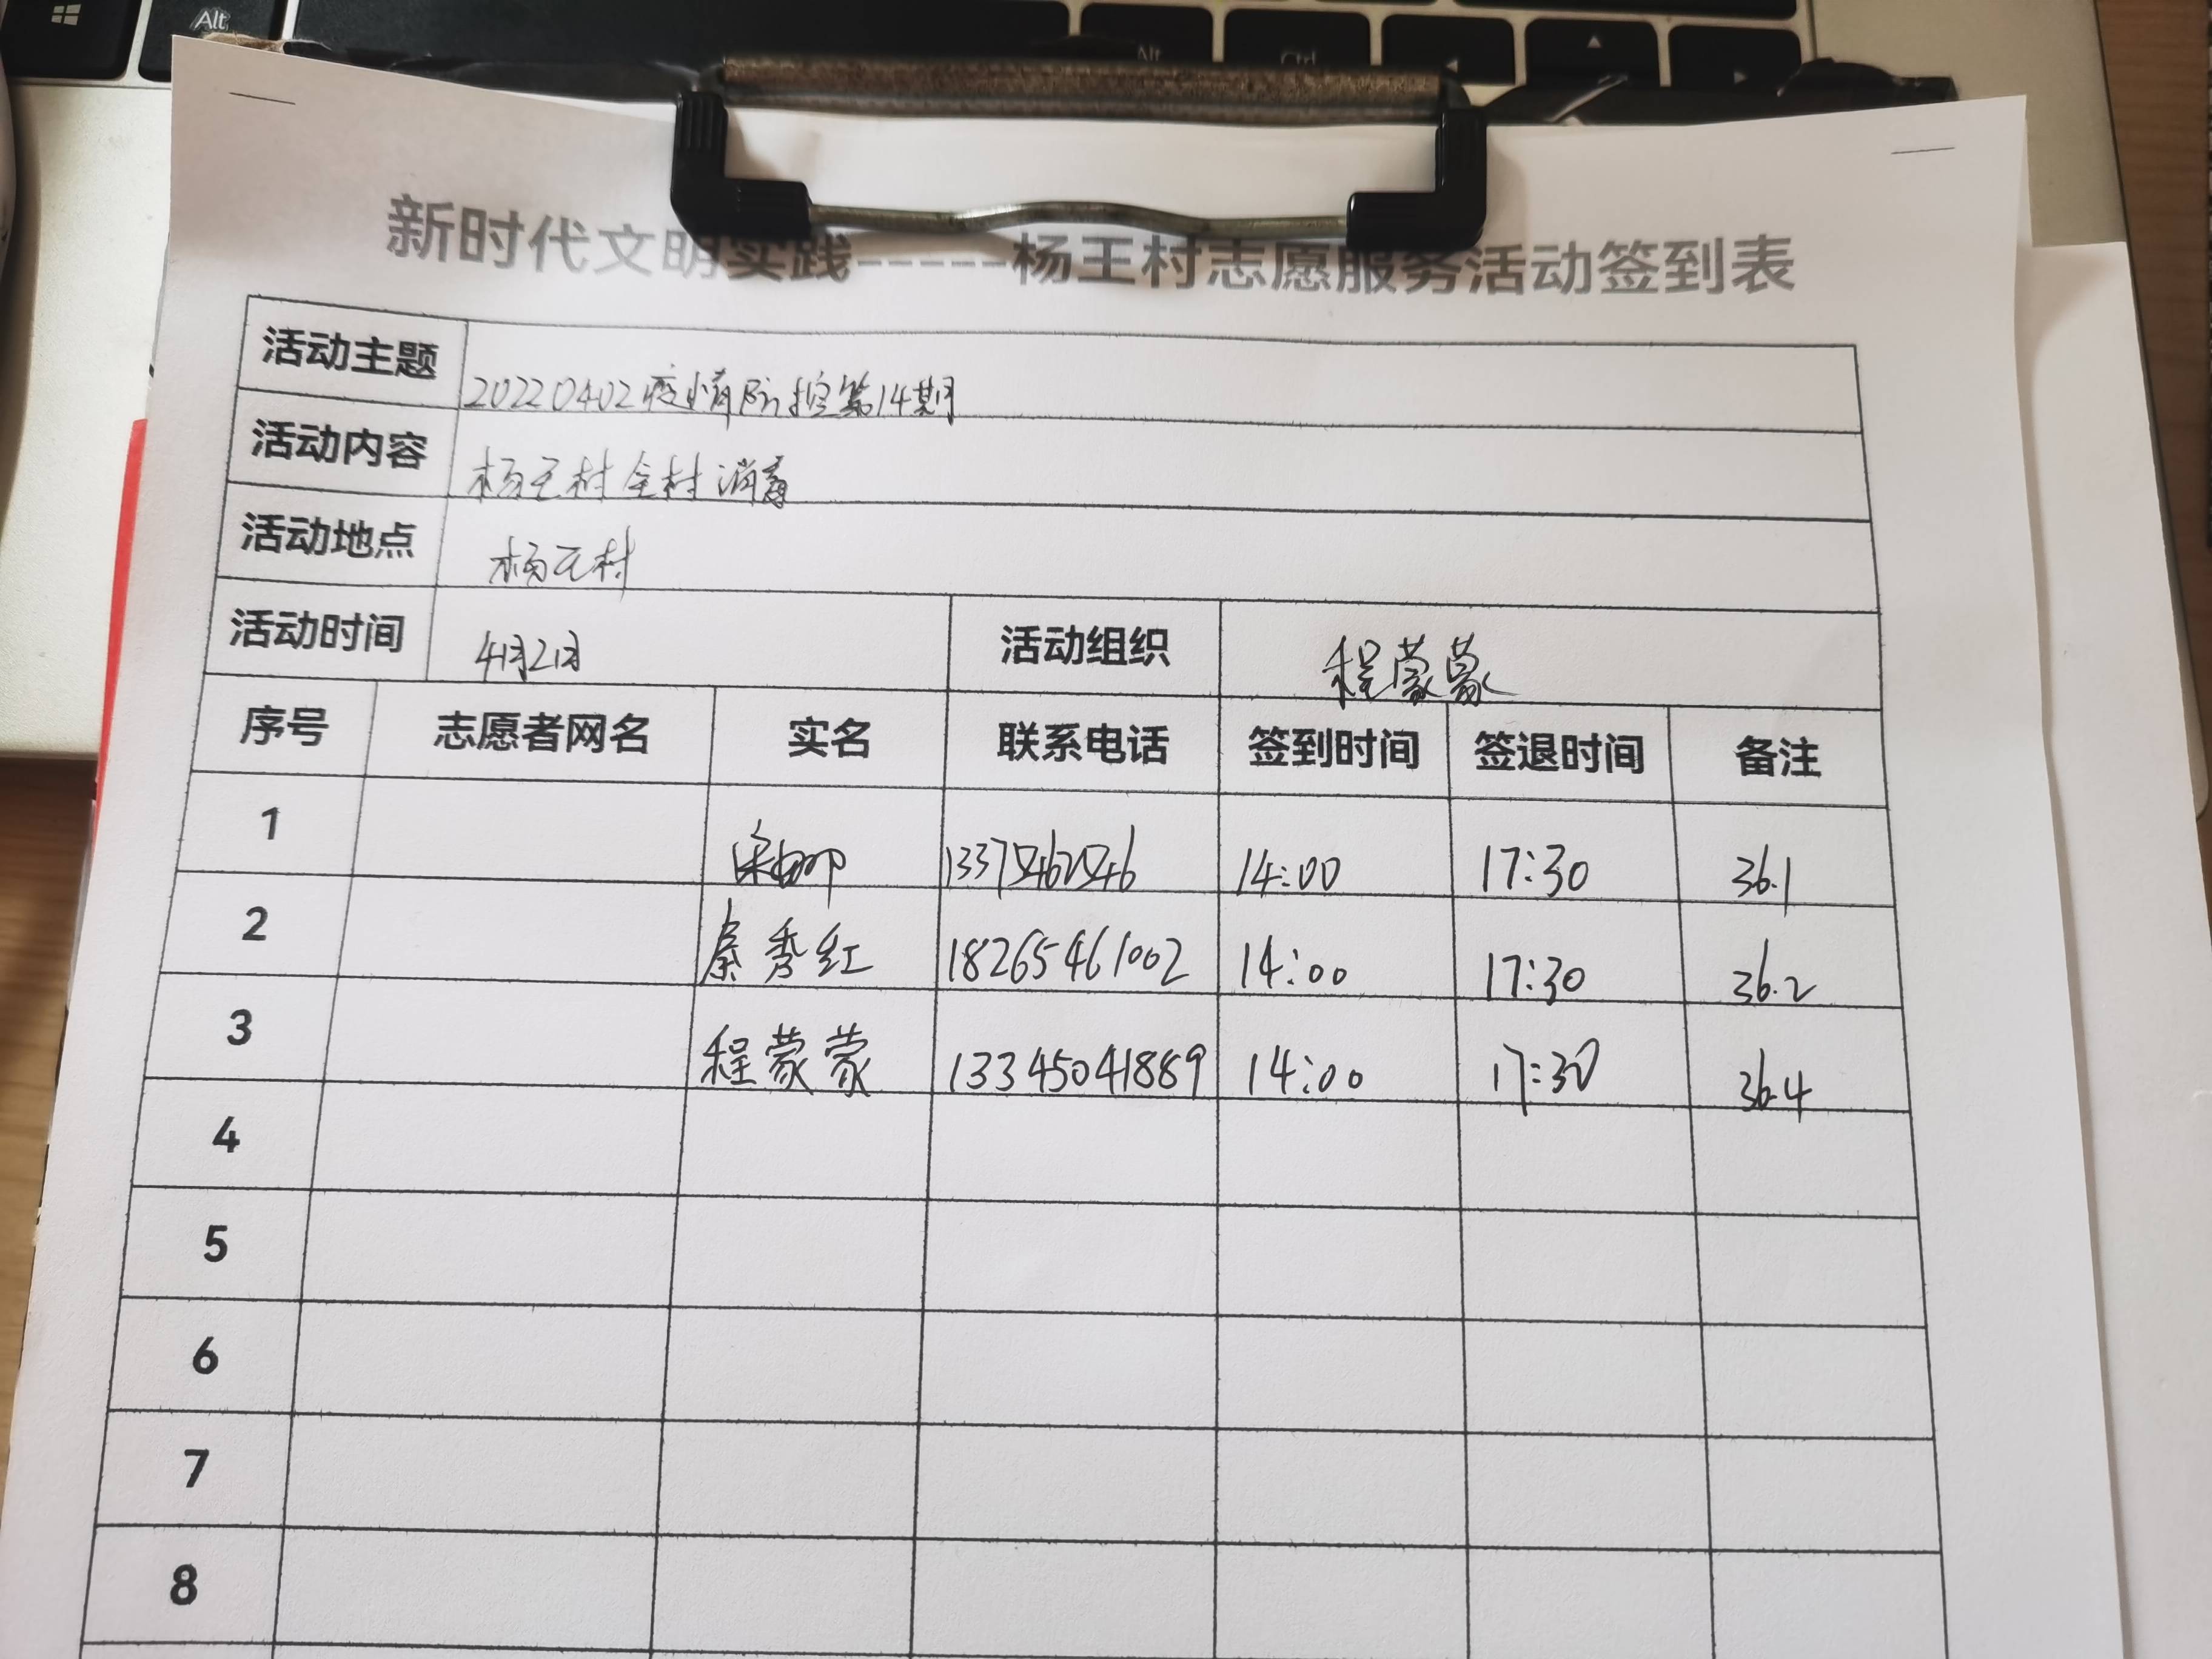 Alt
Alt
Ctrl
新时代文明实践-----杨王村志愿服务活动签到表
活动主题 20220402疫情防控第14期
活动内容 杨王村全村消毒
活动地点 杨王村
活动时间 4月2日 活动组织 程蒙蒙
序号 志愿者网名 实名 联系电话 签到时间 签退时间 备注
1 14:00 17:30 36.1
2 秦秀红 18265461002 14:00 17:30 36.2
3 程蒙蒙 13345041889 14:00 17:30 36.4
4
5
6
7
8